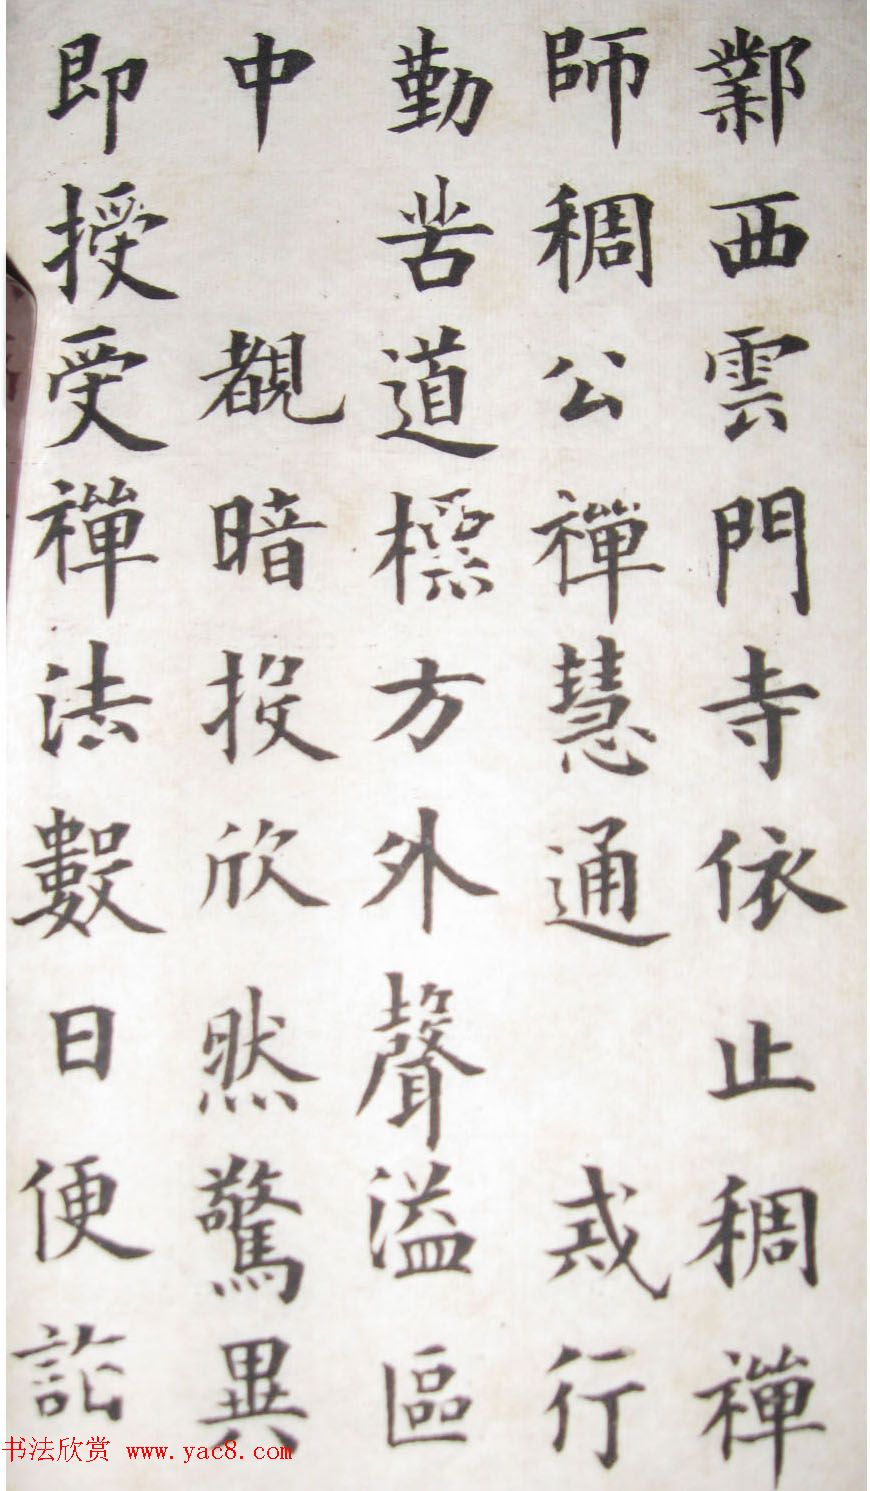 鄴西雲門寺依止稠禪
師稠公禪慧通戒行
勤苦道標方外聲溢區
中覩暗投欣然驚異
即授受禪法數日便詣
书法欣赏 www.yac8.com